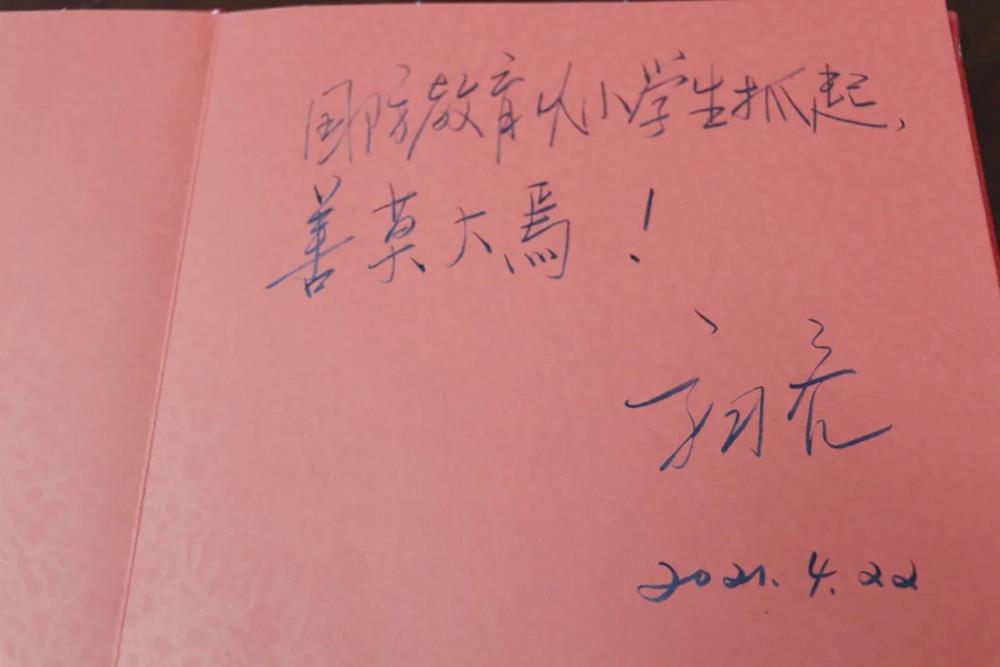 国防教育从小学生抓起,
善莫大焉!
2021.4.22